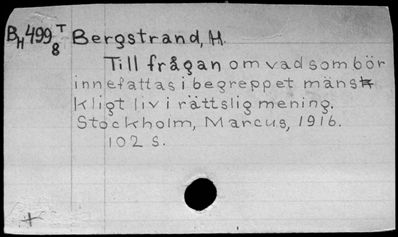 BH499 T Bergstrand, H.
8
Till frågan om vad som bör
innefattas i begreppet mänsk
kligt liv i rättslig mening.
Stockholm, Marcus, 1916.
102 s.
+